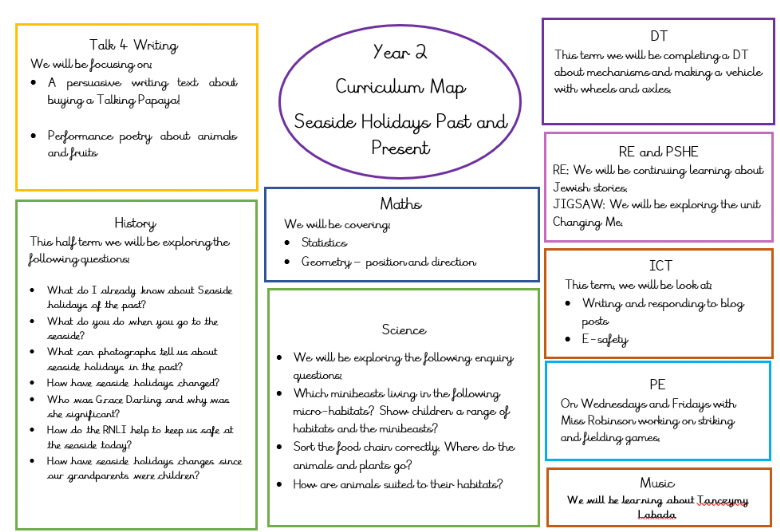 Talk 4 Writing
We will be focusing on:
• A persuasive writing text about
buying a Talking Papaya!
• Performance poetry about animals
and fruits
Year 2
Curriculum Map
Seaside Holidays Past and
Present
DT
This term we will be completing a DT
about mechanisms and making a vehicle
with wheels and axles.
RE and PSHE
RE: We will be continuing learning about
Jewish stories.
JIGSAW: We will be exploring the unit
Changing Me.
History
This half term we will be exploring the
following questions:
• What do I already know about Seaside
holidays of the past?
• What do you do when you go to the
seaside?
• What can photographs tell us about
seaside holidays in the past?
• How have seaside holidays changed?
• Who was Grace Darling and why was
she significant?
• How do the RNLI help to keep us safe at
the seaside today?
• How have seaside holidays changes since
our grandparents were children?
Maths
We will be covering:
• Statistics
• Geometry – position and direction
Science
• We will be exploring the following enquiry
questions:
• Which minibeasts living in the following
micro-habitats? Show children a range of
habitats and the minibeasts?
• Sort the food chain correctly. Where do the
animals and plants go?
• How are animals suited to their habitats?
ICT
This term, we will be look at:
• Writing and responding to blog
posts
• E-safety
PE
On Wednesdays and Fridays with
Miss Robinson working on striking
and fielding games.
Music
We will be learning about Tanczymy
Labada